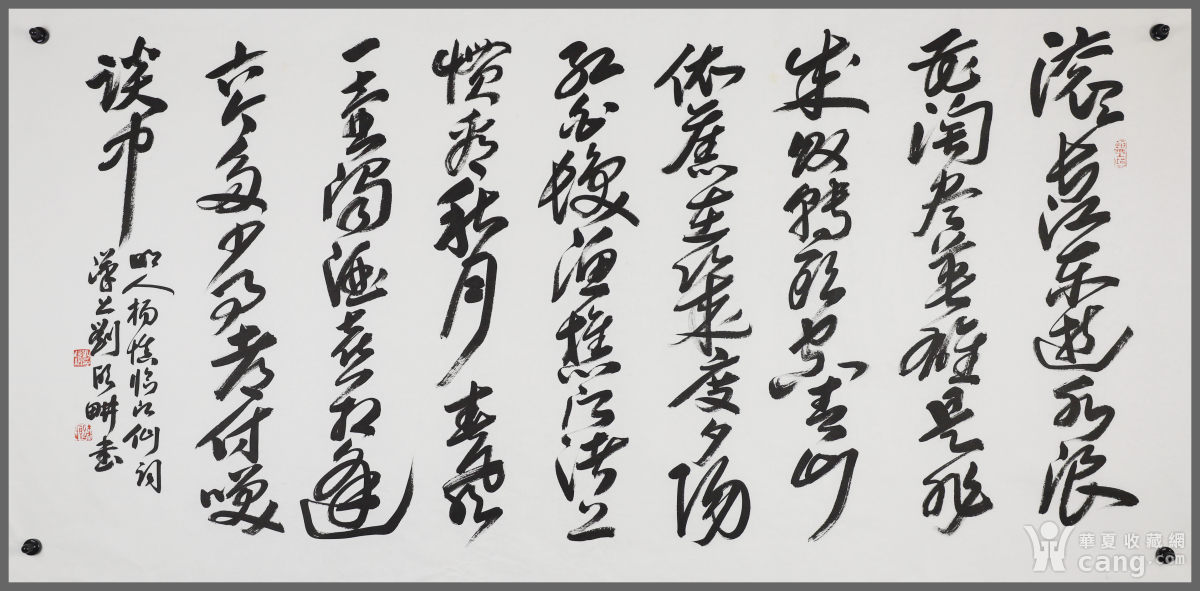 滚滚长江东逝水浪
花淘尽英雄是非
成败轉头空青山
依舊在幾度夕阳
红白髮渔樵江渚上
惯看秋月春风
一壶濁酒喜相逢
古今多少事都付咲
谈中
明人杨慎临江仙词
漢上劉欣畊书
華夏收藏網
cang.com